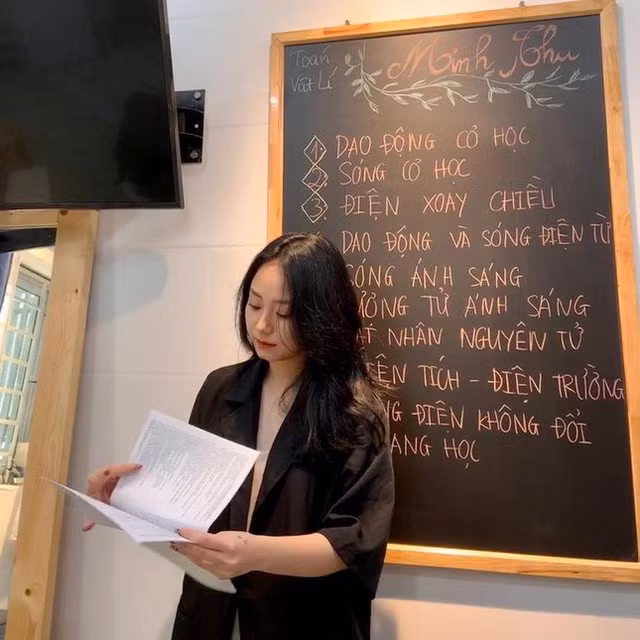 Toán
Vật Lí
Minh Thu
1. DAO ĐỘNG CƠ HỌC
2. SÓNG CƠ HỌC
3. ĐIỆN XOAY CHIỀU
DAO ĐỘNG VÀ SÓNG ĐIỆN TỪ
SÓNG ÁNH SÁNG
ƯỢNG TỬ ÁNH SÁNG
NHÂN NGUYÊN TỬ
ỆN TÍCH - ĐIỆN TRƯỜNG
NG ĐIỆN KHÔNG ĐỔI
ANG HỌC